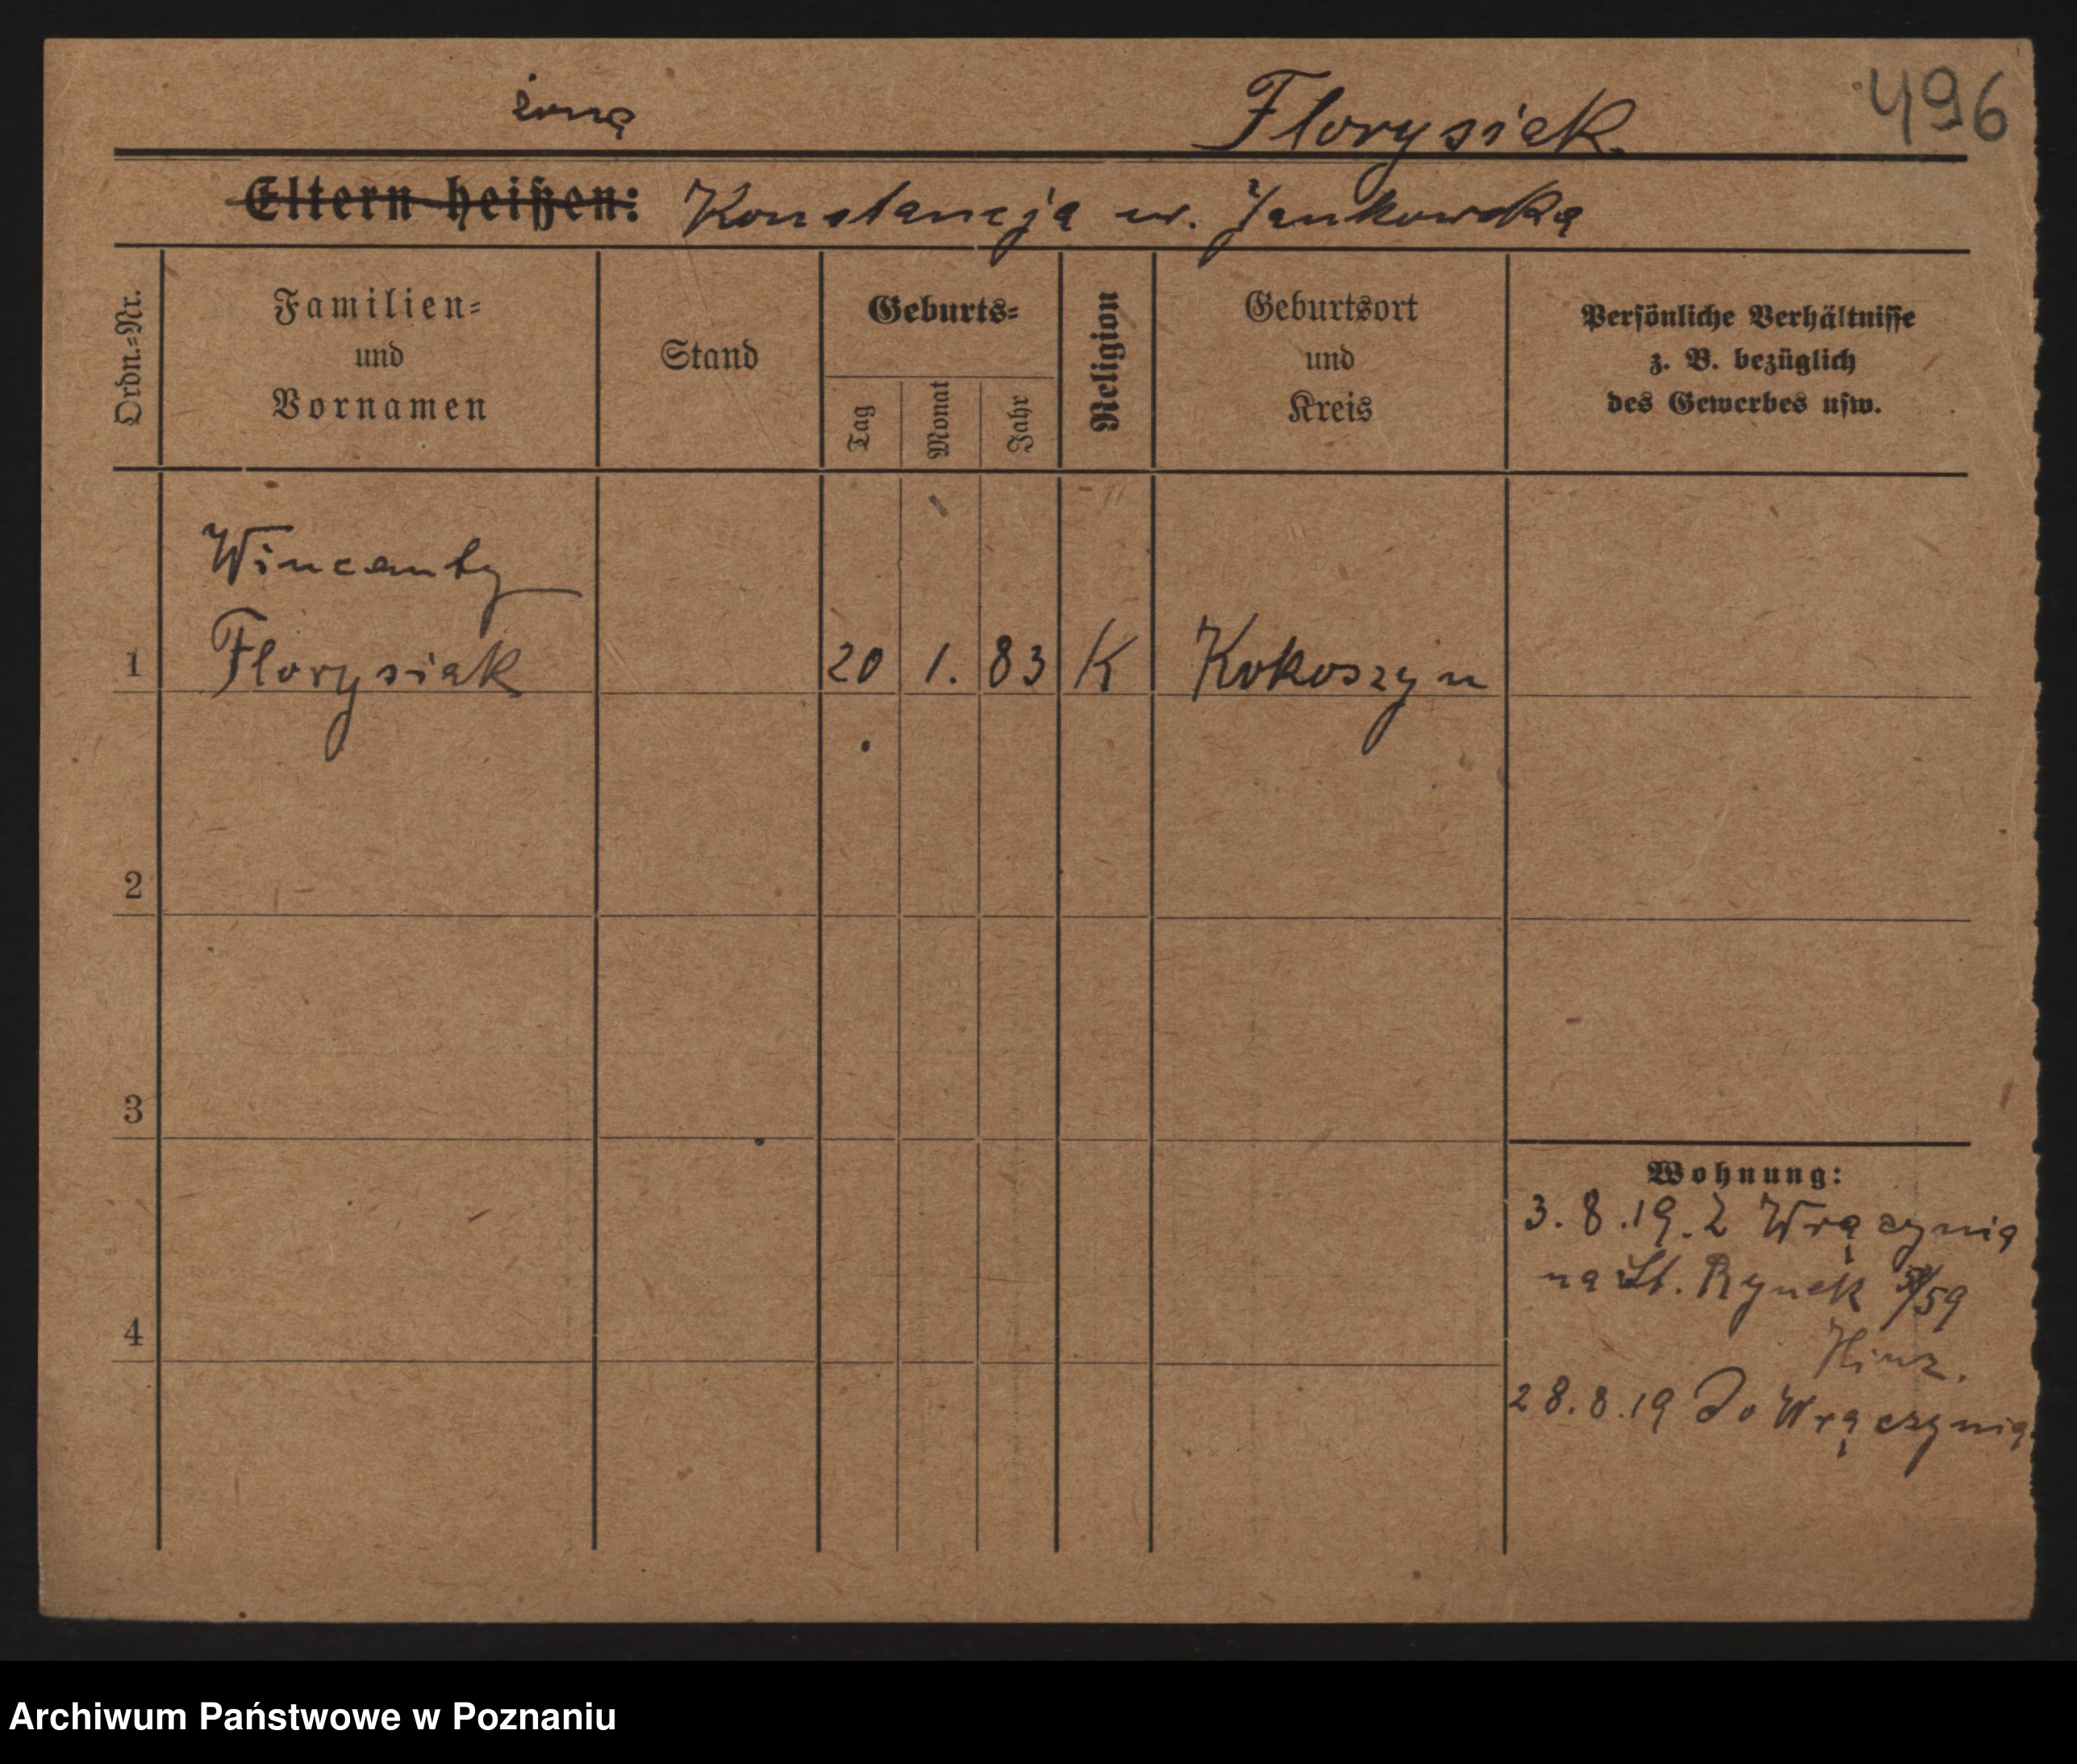 żona
Florysiak
496
Eltern heißen: Konstancja ur. Jankowska
Ordn.-Nr.
Familien-
und
Vornamen
Stand
Geburts-
Tag
Monat
Jahr
Religion
Geburtsort
und
Kreis
Persönliche Verhältnisse
z. B. bezüglich
des Gewerbes usw.
Wincenty
1 Florysiak 20 1. 83 K Kokoszyn
2
3
4
Wohnung:
3.8.19. Z Wrączynia
na St. Rynek 58/59
28.8.19 do Wrączynia
Archiwum Państwowe w Poznaniu